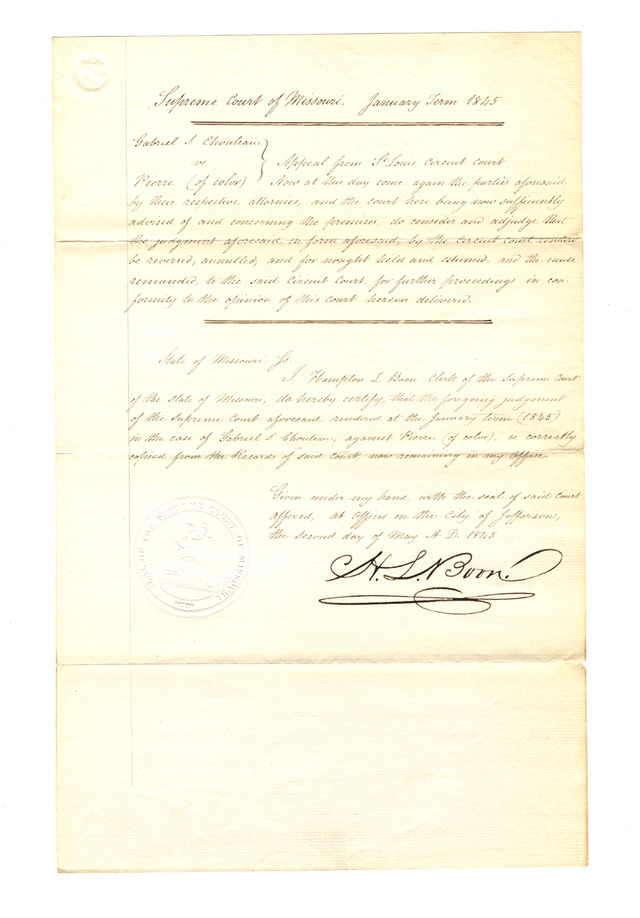 Supreme Court of Missouri. January Term 1845
Gabriel S Chouteau
vs } Appeal from St Louis Circuit Court
Pierre (of color) Now at this day come again the parties aforesaid
by their respective attornies, and the court here being now sufficiently
advised of and concerning the premises, do consider and adjudge that
the judgment aforesaid, in form aforesaid, by the Circuit Court rendered
be reversed, annulled, and for nought held and esteemed. and the cause
remanded, to the said Circuit Court, for further proceedings in con-
formity to the opinion of this court herein delivered.
State of Missouri Ss.
I. Hampton L Boon Clerk of the Supreme Court
of the State of Missouri, do hereby certify, that the foregoing judgment
of the Supreme Court aforesaid rendered at the January term (1845)
in the case of Gabriel S Chouteau, against Pierre (of color), is correctly
copied from the Records of said court, now remaining in my Office
Given under my hand, with the seal of said court
affixed, at Office in the City of Jefferson,
the second day of May A D. 1845
H. L. Boon.
SEAL OF THE SUPREME COURT OF MISSOURI